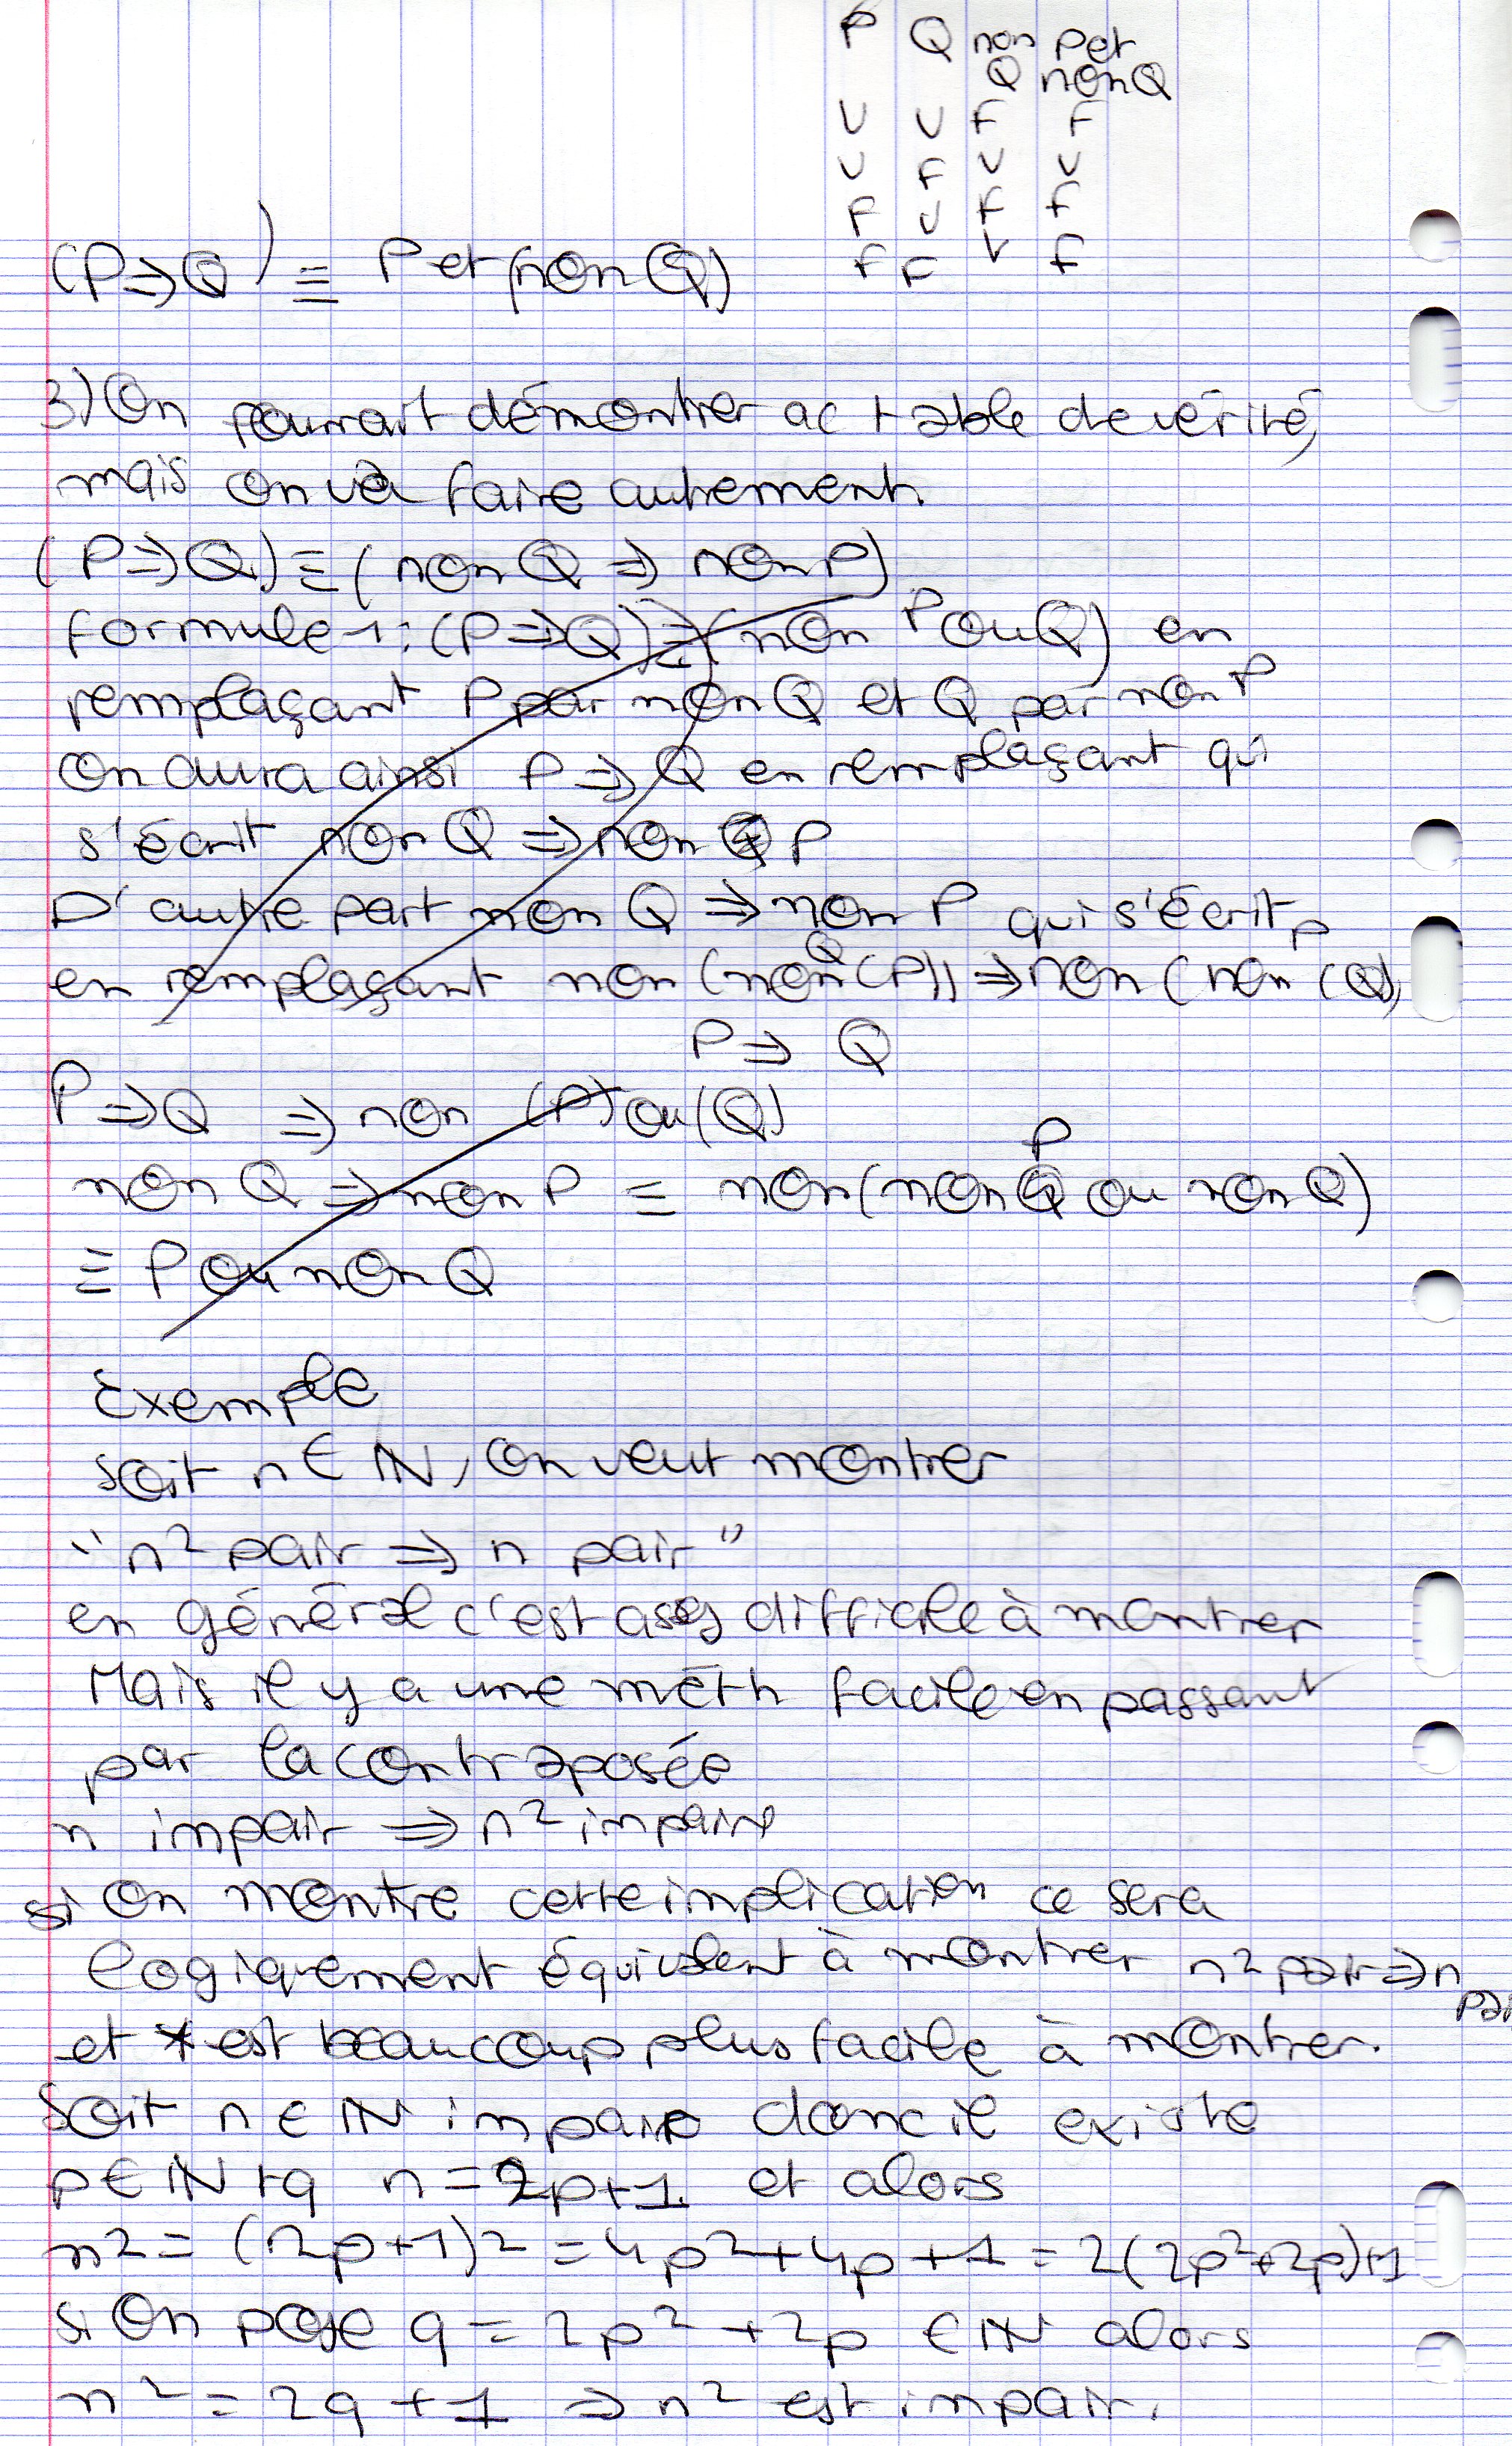 P Q non P et
Q non Q
V V F F
V F V V
F V F F
F F V F
(P⇒Q) ≡ P et (non Q)
3) On pourrait démontrer ac table de vérité,
mais on va faire autrement.
(P⇒Q) ≡ (non Q ⇒ non P)
formule 1 : (P⇒Q) ≡ (non P ou Q) en
remplaçant P par non Q et Q par non P
on aura ainsi P ⇒ Q en remplaçant qui
s'écrit non Q ⇒ non P
D'autre part non Q ⇒ non P qui s'écrit
en remplaçant non (non (P)) ⇒ non (non (Q))
P ⇒ Q
P ⇒ Q ⇒ non (P) ou (Q)
non Q ⇒ non P ≡ non (non P ou non Q)
≡ P ou non Q
Exemple
soit n ∈ ℕ, on veut montrer
"n² pair ⇒ n pair"
en général c'est assez difficile à montrer
Mais il y a une méth facile en passant
par la contraposée
n impair ⇒ n² impair
si on montre cette implication ce sera
logiquement équivalent à montrer n² pair ⇒ n
pair
et * est beaucoup plus facile à montrer.
Soit n ∈ ℕ impair donc il existe
p ∈ ℕ tq n = 2p+1 et alors
n² = (2p+1)² = 4p² + 4p + 1 = 2(2p²+2p)+1
si on pose q = 2p² + 2p ∈ ℕ alors
n² = 2q + 1 ⇒ n² est impair.